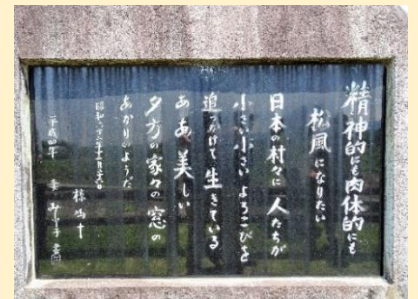 精神的にも肉体的にも
松風になりたい
日本の村々に 人たちが
小さい小さい よろこびを
追っかけて 生きている
ああ 美しい
夕方の家々の窓の
あかりのようだ
椋鳩十
平成四年
書